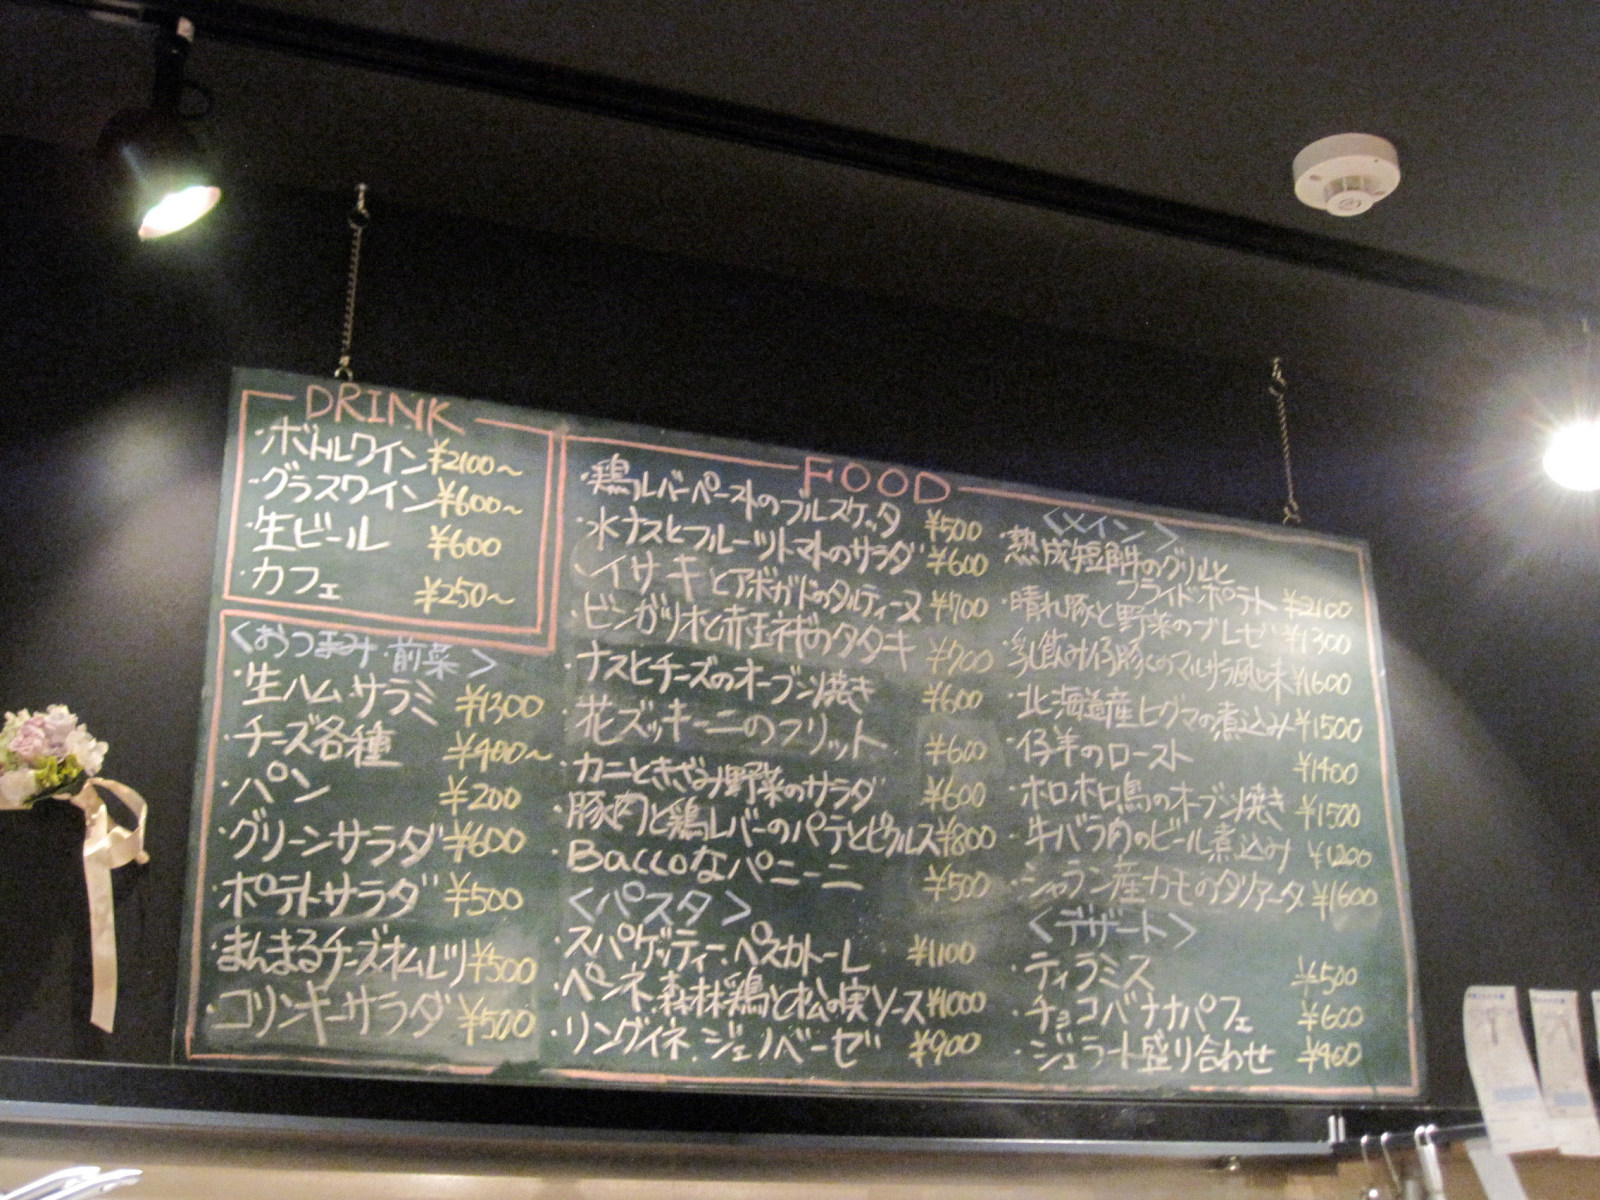 DRINK
・ボトルワイン ¥2100～
・グラスワイン ¥600～
・生ビール ¥600
・カフェ ¥250～
<おつまみ・前菜>
・生ハムサラミ ¥1300
・チーズ各種 ¥400～
・パン ¥200
・グリーンサラダ ¥600
・ポテトサラダ ¥500
・まんまるチーズオムレツ ¥500
・コリンキーサラダ ¥500
FOOD
・鶏レバーペーストのブルスケッタ ¥500
・水ナスとフルーツトマトのサラダ ¥600
・イサキとアボガドのタルティーヌ ¥700
・ビンガツオと赤玉ネギのタタキ ¥700
・ナスとチーズのオーブン焼き ¥600
・花ズッキーニのフリット ¥600
・カニときざみ野菜のサラダ ¥600
・豚肉と鶏レバーのパテとピクルス ¥800
・Baccoなパニーニ ¥500
<パスタ>
・スパゲッティー・ペスカトーレ ¥1100
・ペンネ・森林鶏と松の実ソース ¥1000
・リングイネ・ジェノベーゼ ¥900
<メイン>
・熟成短角牛のグリルと
フライドポテト ¥2100
・晴れ豚と野菜のブレゼ ¥1300
・乳飲み仔豚のマルサラ風味 ¥1600
・北海道産ヒグマの煮込み ¥1500
・仔羊のロースト ¥1400
・ホロホロ鳥のオーブン焼き ¥1500
・牛バラ肉のビール煮込み ¥1200
・シャラン産カモのタリアータ ¥1600
<デザート>
・ティラミス ¥500
・チョコバナナパフェ ¥600
・ジェラート盛り合わせ ¥400